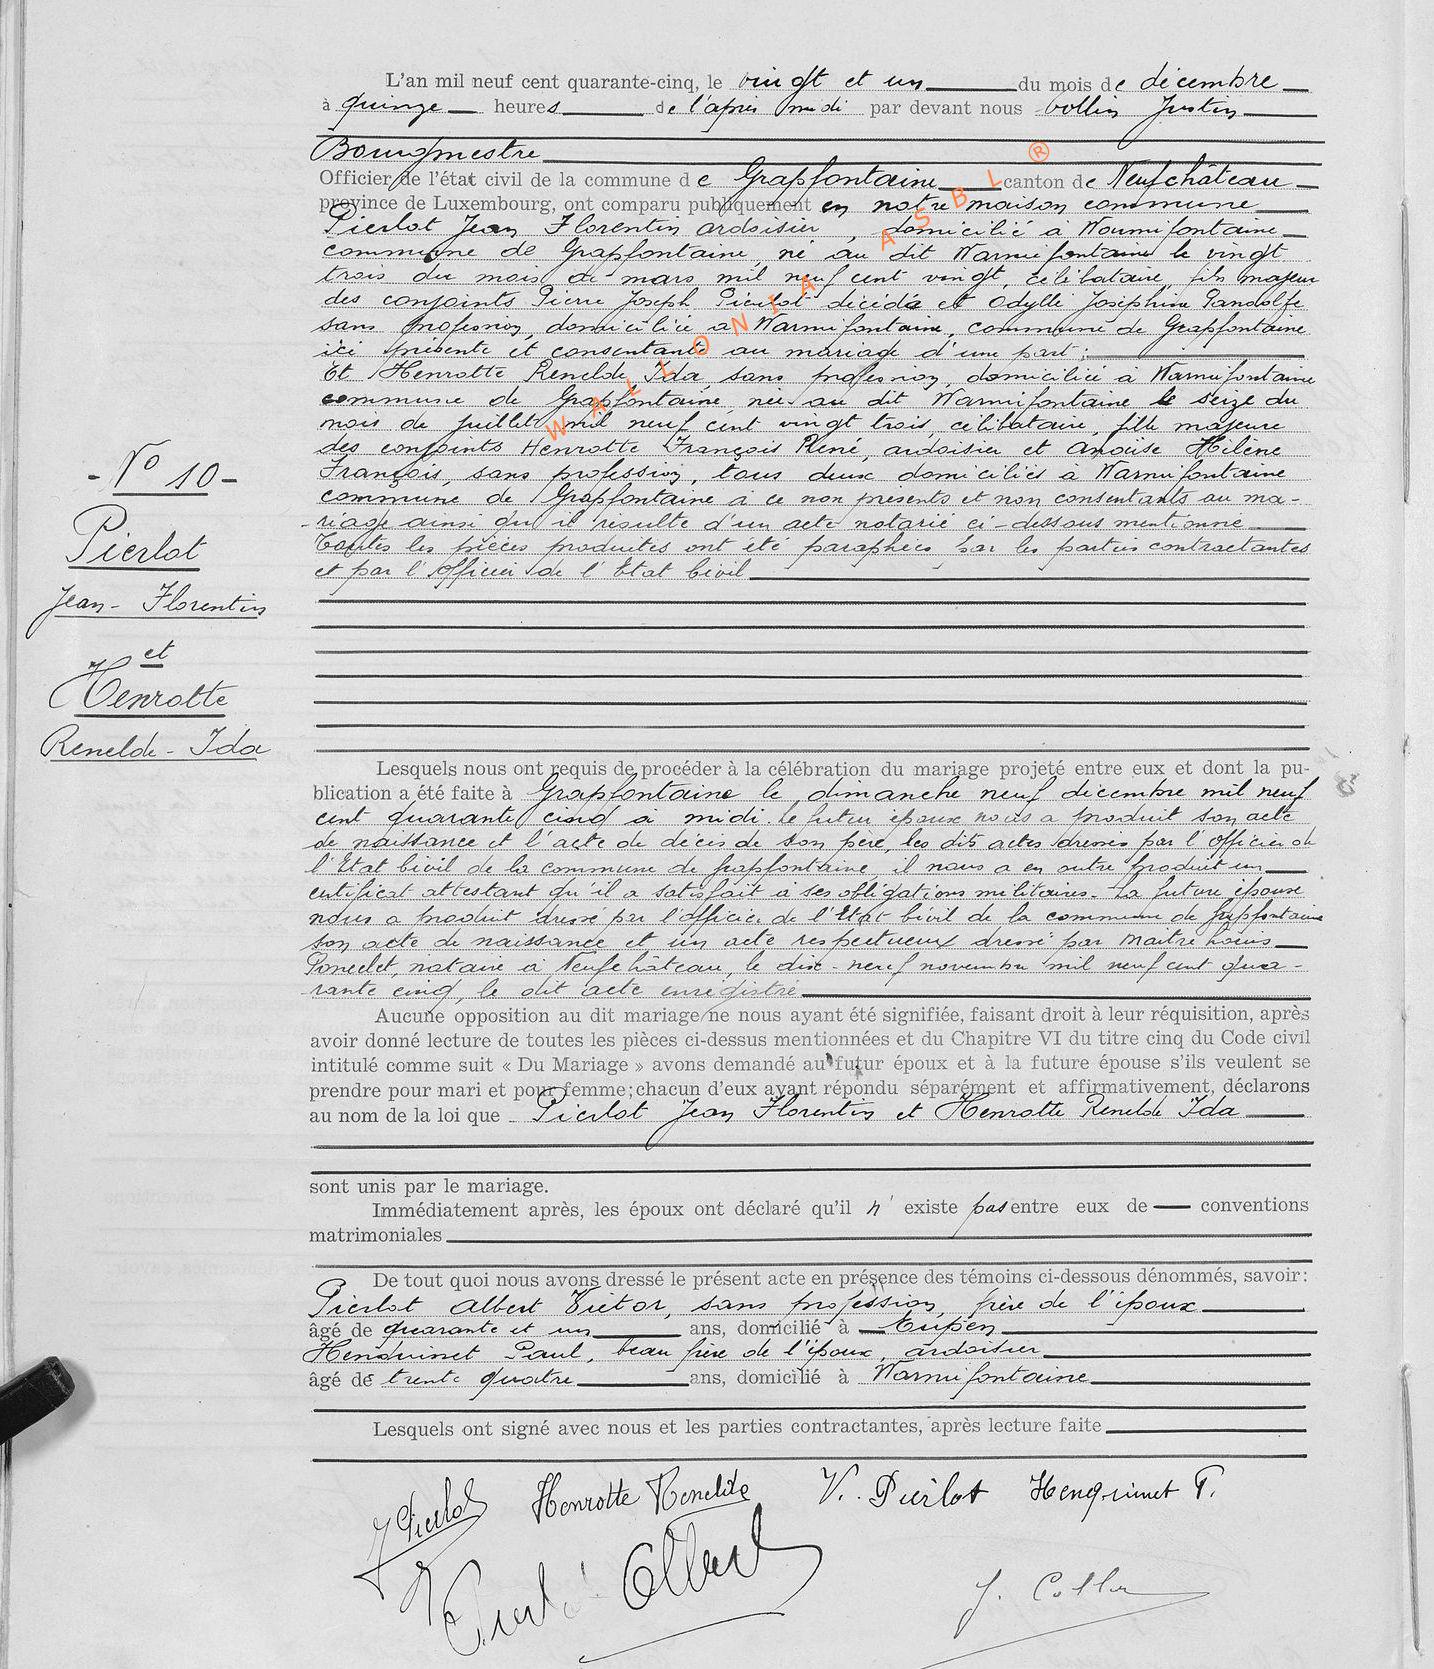 L'an mil neuf cent quarante-cinq, le vingt et un du mois de décembre
à quinze heures de l'après midi par devant nous Collin Justin
Bourgmestre
Officier de l'état civil de la commune de Grapfontaine canton de Neufchâteau
province de Luxembourg, ont comparu publiquement en notre maison commune
Pierlot Jean Florentin ardoisier, domicilié à Warmifontaine
commune de Grapfontaine, né au dit Warmifontaine le vingt
trois du mois de mars mil neuf cent vingt, célibataire, fils majeur
des conjoints Pierre Joseph Pierlot décédé et Odylle Joséphine Pandolfe
sans profession, domiciliée à Warmifontaine, commune de Grapfontaine
ici présente et consentante au mariage d'une part;
Et Henrotte Renelde Ida, sans profession, domiciliée à Warmifontaine
commune de Grapfontaine, née au dit Warmifontaine le seize du
mois de juillet mil neuf cent vingt trois, célibataire, fille majeure
des conjoints Henrotte François René, ardoisier et Hélène
François, sans profession, tous deux domiciliés à Warmifontaine
commune de Grapfontaine à ce non présents et non consentants au ma-
-riage ainsi qu'il résulte d'un acte notarié ci-dessous mentionné
Toutes les pièces produites ont été paraphées par les parties contractantes
et par l'Officier de l'Etat Civil
- N° 10 -
Pierlot
Jean-Florentin
et
Henrotte
Renelde-Ida
Lesquels nous ont requis de procéder à la célébration du mariage projeté entre eux et dont la pu-
blication a été faite à Grapfontaine le dimanche neuf décembre mil neuf
cent quarante cinq à midi. Le futur époux nous a produit son acte
de naissance et l'acte de décès de son père, les dits actes dressés par l'officier de
l'Etat Civil de la commune de Grapfontaine, il nous a en outre produit un
certificat attestant qu'il a satisfait à ses obligations militaires. La future épouse
nous a produit dressé par l'officier de l'Etat Civil de la commune de Grapfontaine
son acte de naissance et un acte respectueux dressé par Maître Louis
Poncelet, notaire à Neufchâteau, le dix-neuf novembre mil neuf cent qua-
rante cinq, le dit acte enregistré
Aucune opposition au dit mariage ne nous ayant été signifiée, faisant droit à leur réquisition, après
avoir donné lecture de toutes les pièces ci-dessus mentionnées et du Chapitre VI du titre cinq du Code civil
intitulé comme suit « Du Mariage » avons demandé au futur époux et à la future épouse s'ils veulent se
prendre pour mari et pour femme; chacun d'eux ayant répondu séparément et affirmativement, déclarons
au nom de la loi que Pierlot Jean Florentin et Henrotte Renelde Ida
sont unis par le mariage.
Immédiatement après, les époux ont déclaré qu'il n'existe pas entre eux de conventions
matrimoniales
De tout quoi nous avons dressé le présent acte en présence des témoins ci-dessous dénommés, savoir:
Pierlot Albert Victor, sans profession, frère de l'époux
âgé de quarante et un ans, domicilié à Eupen
Henquinet Paul, beau frère de l'époux, ardoisier
âgé de trente quatre ans, domicilié à Warmifontaine
Lesquels ont signé avec nous et les parties contractantes, après lecture faite
J Pierlot Henrotte Renelde V. Pierlot Henquinet P.
Pierlot Albert
J. Collin
WALLONIA ASBL ®